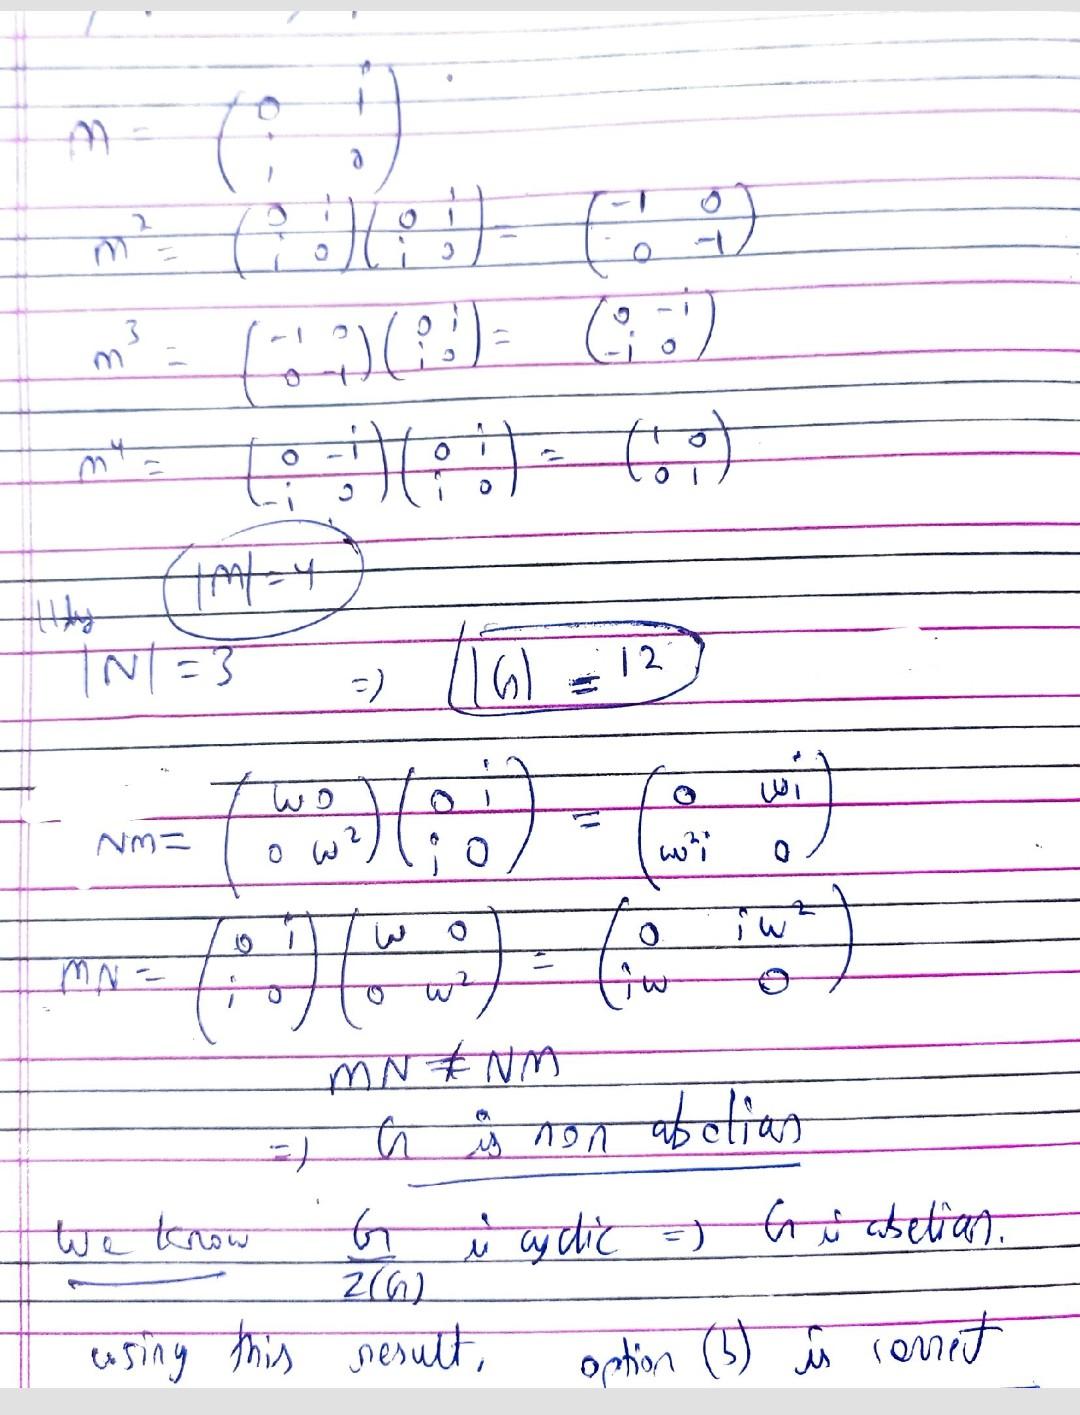 M = (0 i
i 0)
m² = (0 i
i 0) (0 i
i 0) = (-1 0
0 -1)
m³ = (-1 0
0 -1) (0 i
i 0) = (0 -i
-i 0)
m⁴ = (0 -i
-i 0) (0 i
i 0) = (1 0
0 1)
|M| = 4
lly
|N| = 3 => |G| = 12
NM = (w 0
0 w²) (0 i
i 0) = (0 wi
w²i 0)
MN = (0 i
i 0) (w 0
0 w²) = (0 iw²
iw 0)
MN ≠ NM
=) G is non abelian
We know G/Z(G) is cyclic =) G is abelian.
using this result, option (b) is correct